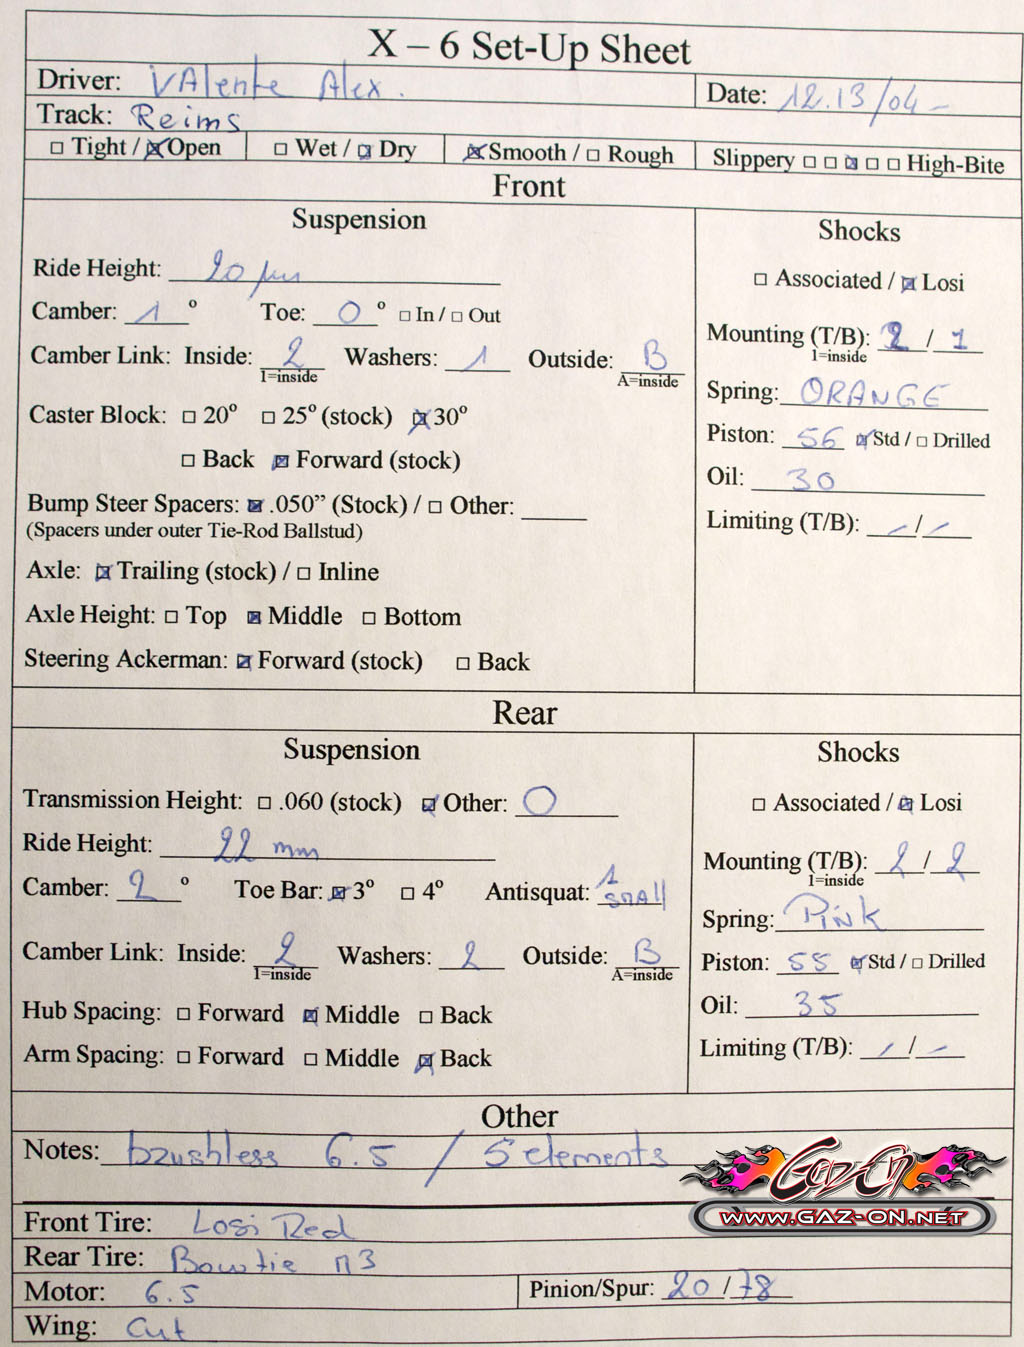 X – 6 Set-Up Sheet
Driver: VAlente Alex. Date: 12.13/04 -
Track: Reims
☐ Tight / ☒ Open ☐ Wet / ☒ Dry ☒ Smooth / ☐ Rough Slippery ☐ ☐ ☒ ☐ ☐ High-Bite
Front
Suspension
Ride Height: 20 mm
Camber: 1 º Toe: 0 º ☐ In / ☐ Out
Camber Link: Inside: 2 Washers: 1 Outside: B
1=inside A=inside
Caster Block: ☐ 20º ☐ 25º (stock) ☒ 30º
☐ Back ☒ Forward (stock)
Bump Steer Spacers: ☒ .050” (Stock) / ☐ Other: ____
(Spacers under outer Tie-Rod Ballstud)
Axle: ☒ Trailing (stock) / ☐ Inline
Axle Height: ☐ Top ☒ Middle ☐ Bottom
Steering Ackerman: ☒ Forward (stock) ☐ Back
Shocks
☐ Associated / ☒ Losi
Mounting (T/B): 2 / 1
1=inside
Spring: ORANGE
Piston: 56 ☒ Std / ☐ Drilled
Oil: 30
Limiting (T/B): - / -
Rear
Suspension
Transmission Height: ☐ .060 (stock) ☒ Other: 0
Ride Height: 22 mm
Camber: 2 º Toe Bar: ☒ 3º ☐ 4º Antisquat: 1 smAll
Camber Link: Inside: 2 Washers: 2 Outside: B
1=inside A=inside
Hub Spacing: ☐ Forward ☒ Middle ☐ Back
Arm Spacing: ☐ Forward ☐ Middle ☒ Back
Shocks
☐ Associated / ☒ Losi
Mounting (T/B): 2 / 2
1=inside
Spring: Pink
Piston: 55 ☒ Std / ☐ Drilled
Oil: 35
Limiting (T/B): - / -
Other
Notes: brushless 6.5 / 5 elements
GazOn
WWW.GAZ-ON.NET
Front Tire: Losi Red
Rear Tire: Bowtie m3
Motor: 6.5 Pinion/Spur: 20 / 78
Wing: Cut